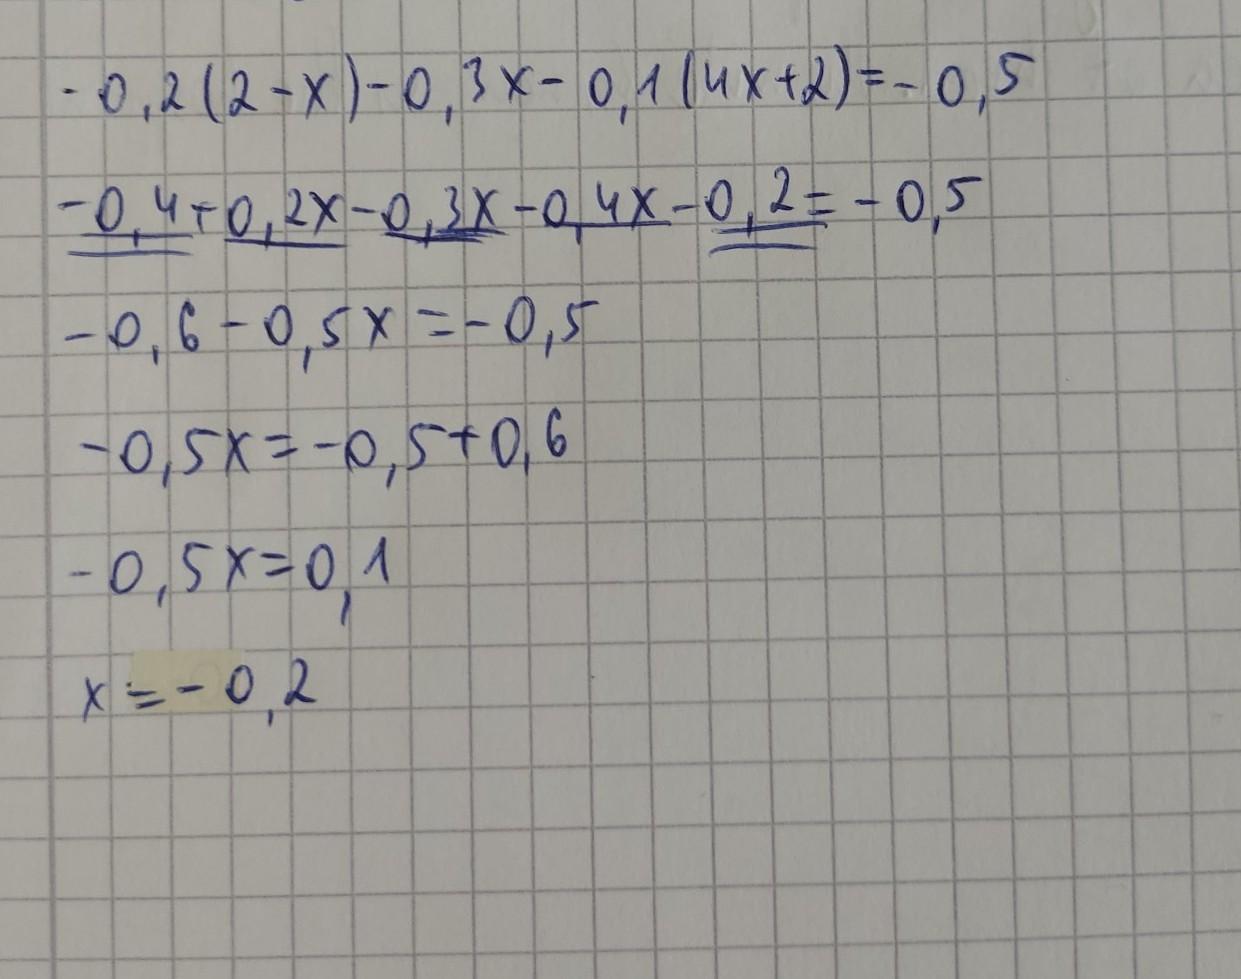 -0,2(2-x)-0,3x-0,1(4x+2)=-0,5
-0,4+0,2x-0,3x-0,4x-0,2=-0,5
-0,6-0,5x=-0,5
-0,5x=-0,5+0,6
-0,5x=0,1
x=-0,2